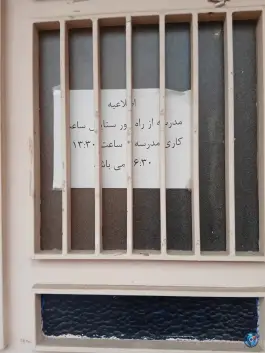 اطلاعیه
مدرسه از راه دور ستا ساعت
کاری مدرسه ساعت ۱۳:۳۰
۶:۳۰ می باشد